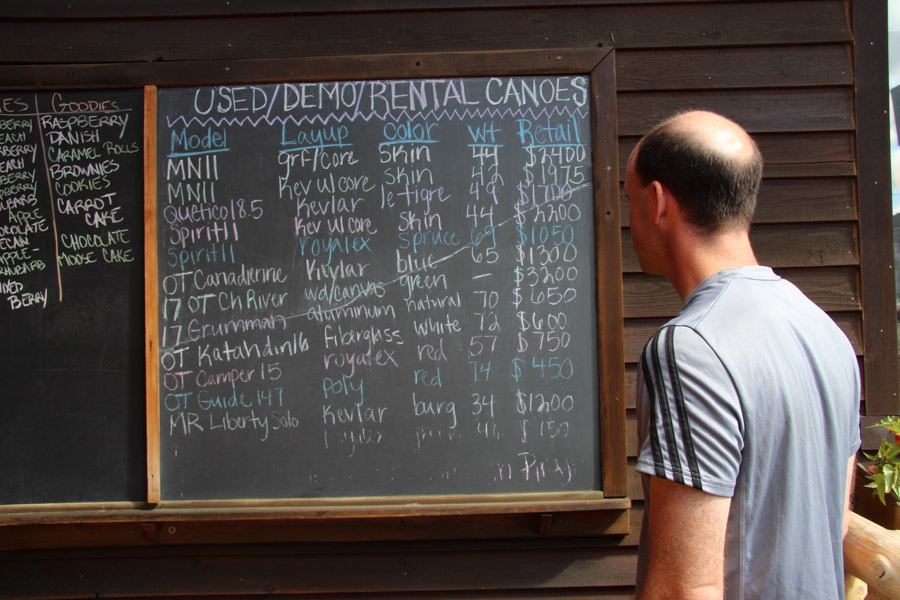 IES
BERRY
EACH
RBERRY
EACH
BERRY
BERRY
UBARB
APPLE
OCOLATE
ECAN
APPLE-
RHUBARB
MIXED
BERRY
GOODIES
RASPBERRY
DANISH
CARAMEL ROLLS
BROWNIES
COOKIES
CARROT
CAKE
CHOCOLATE
MOOSE CAKE
USED/DEMO/RENTAL CANOES
Model Layup color wt Retail
MN11 grf/core skin 44 $2400
MN11 Kev w core skin 42 $1975
Quetico 18.5 Kevlar le tigre 49 $1700
Spirit11 Kev w core skin 44 $2200
Spirit11 royalex spruce 69 $1050
OT Canadienne Kevlar blue 65 $1300
17 OT Ch River wd/canvas green - $3200
17 Grumman aluminum natural 70 $650
OT Katahdin16 fiberglass white 72 $600
OT Camper 15 royalex red 57 $750
OT Guide 147 poly red 74 $450
MR Liberty Solo Kevlar burg 34 $1200